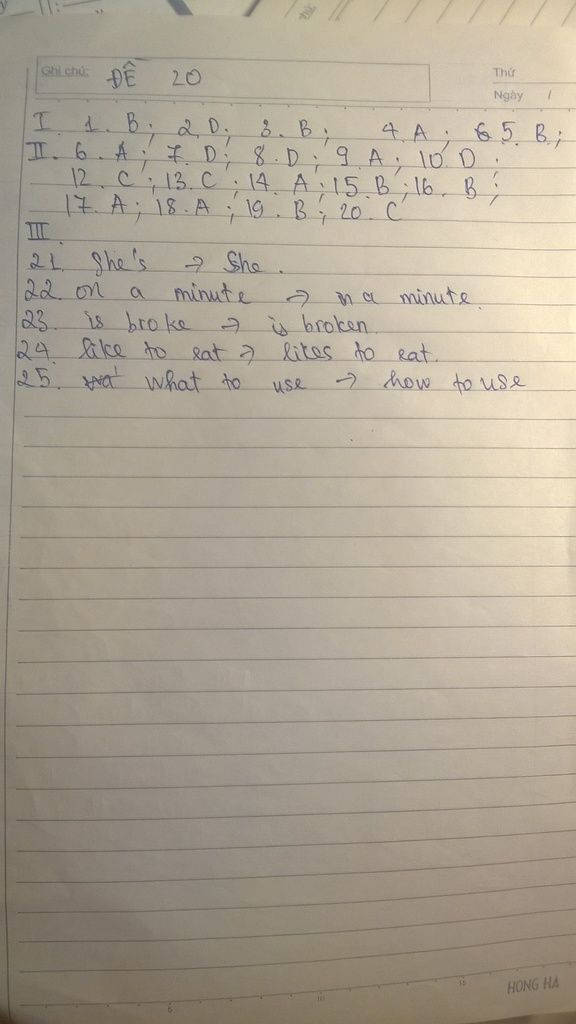 Ghi chú: ĐỀ 20
Thứ
Ngày /
I. 1. B; 2. D; 3. B; 4. A; 5. B;
II. 6. A; 7. D; 8. D; 9. A; 10. D;
12. C; 13. C; 14. A; 15. B; 16. B;
17. A; 18. A; 19. B; 20. C
III.
21. She's → She.
22. on a minute → in a minute.
23. is broke → is broken.
24. like to eat → likes to eat.
25. what to use → how to use
5 10 15
HONG HA